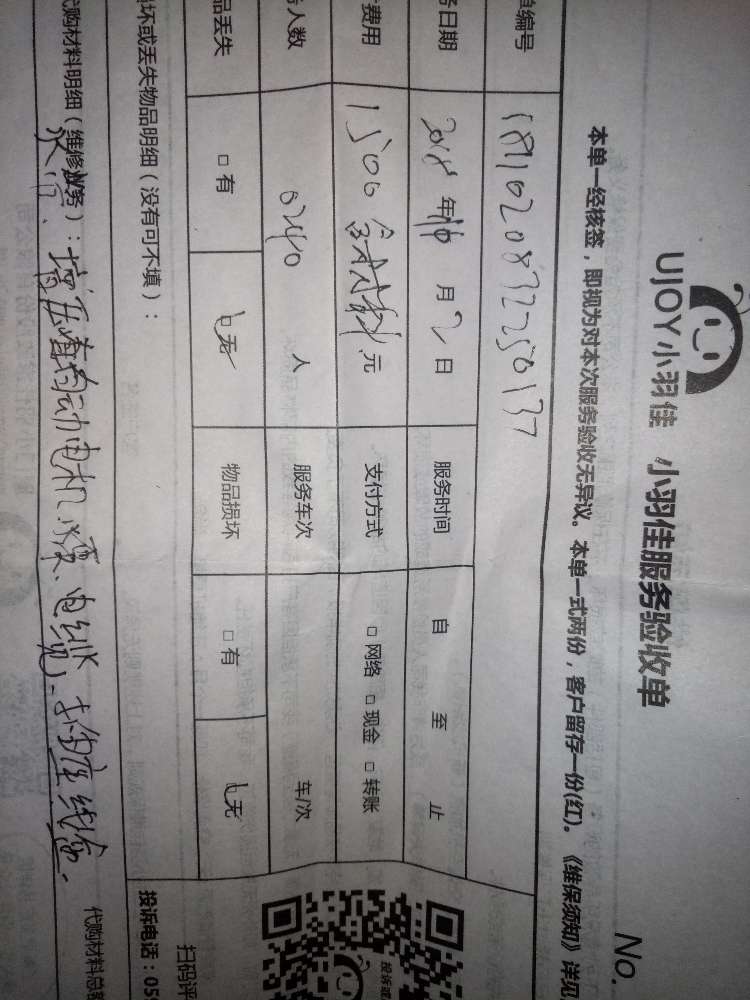 No.
UJOY小羽佳 小羽佳服务验收单
本单一经核签，即视为对本次服务验收无异议。本单一式两份，客户留存一份(红)。《维保须知》详见
单编号 1811020832250137
务日期 2018年 月2日 服务时间 自 至 止
费用 1500含材料元 支付方式 □网络 □现金 □转账
人数 人 服务车次 车/次
品丢失 □有 □无 物品损坏 □有 □无
损坏或丢失物品明细（没有可不填）：
代购材料明细（维修业务）：
电动电机 电缆
代购材料总额
扫码评
投诉电话：05
投诉或